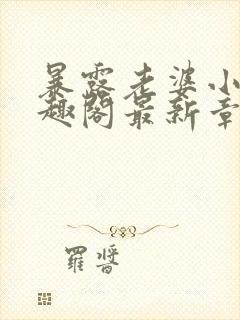 暴露老婆小
趣阁最新章
羅晉